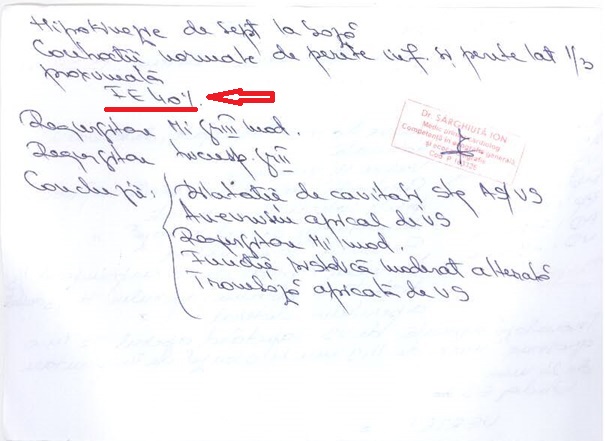 Hipokinezie de sept la bază
Contracții normale de perete inf. și perete lat 1/3
proximală
FE 40%.
Regurgitare Mi grIII mod.
Regurgitare tricusp. grII
Concluzii:
Dilatație de cavități stg AS/VS
Anevrism apical de VS
Regurgitare Mi mod.
Funcție sistolică moderat alterată
Tromboză apicală de VS
Dr. SÂRGHIUȚĂ ION
Medic primar cardiolog
Competență în ecografie generală